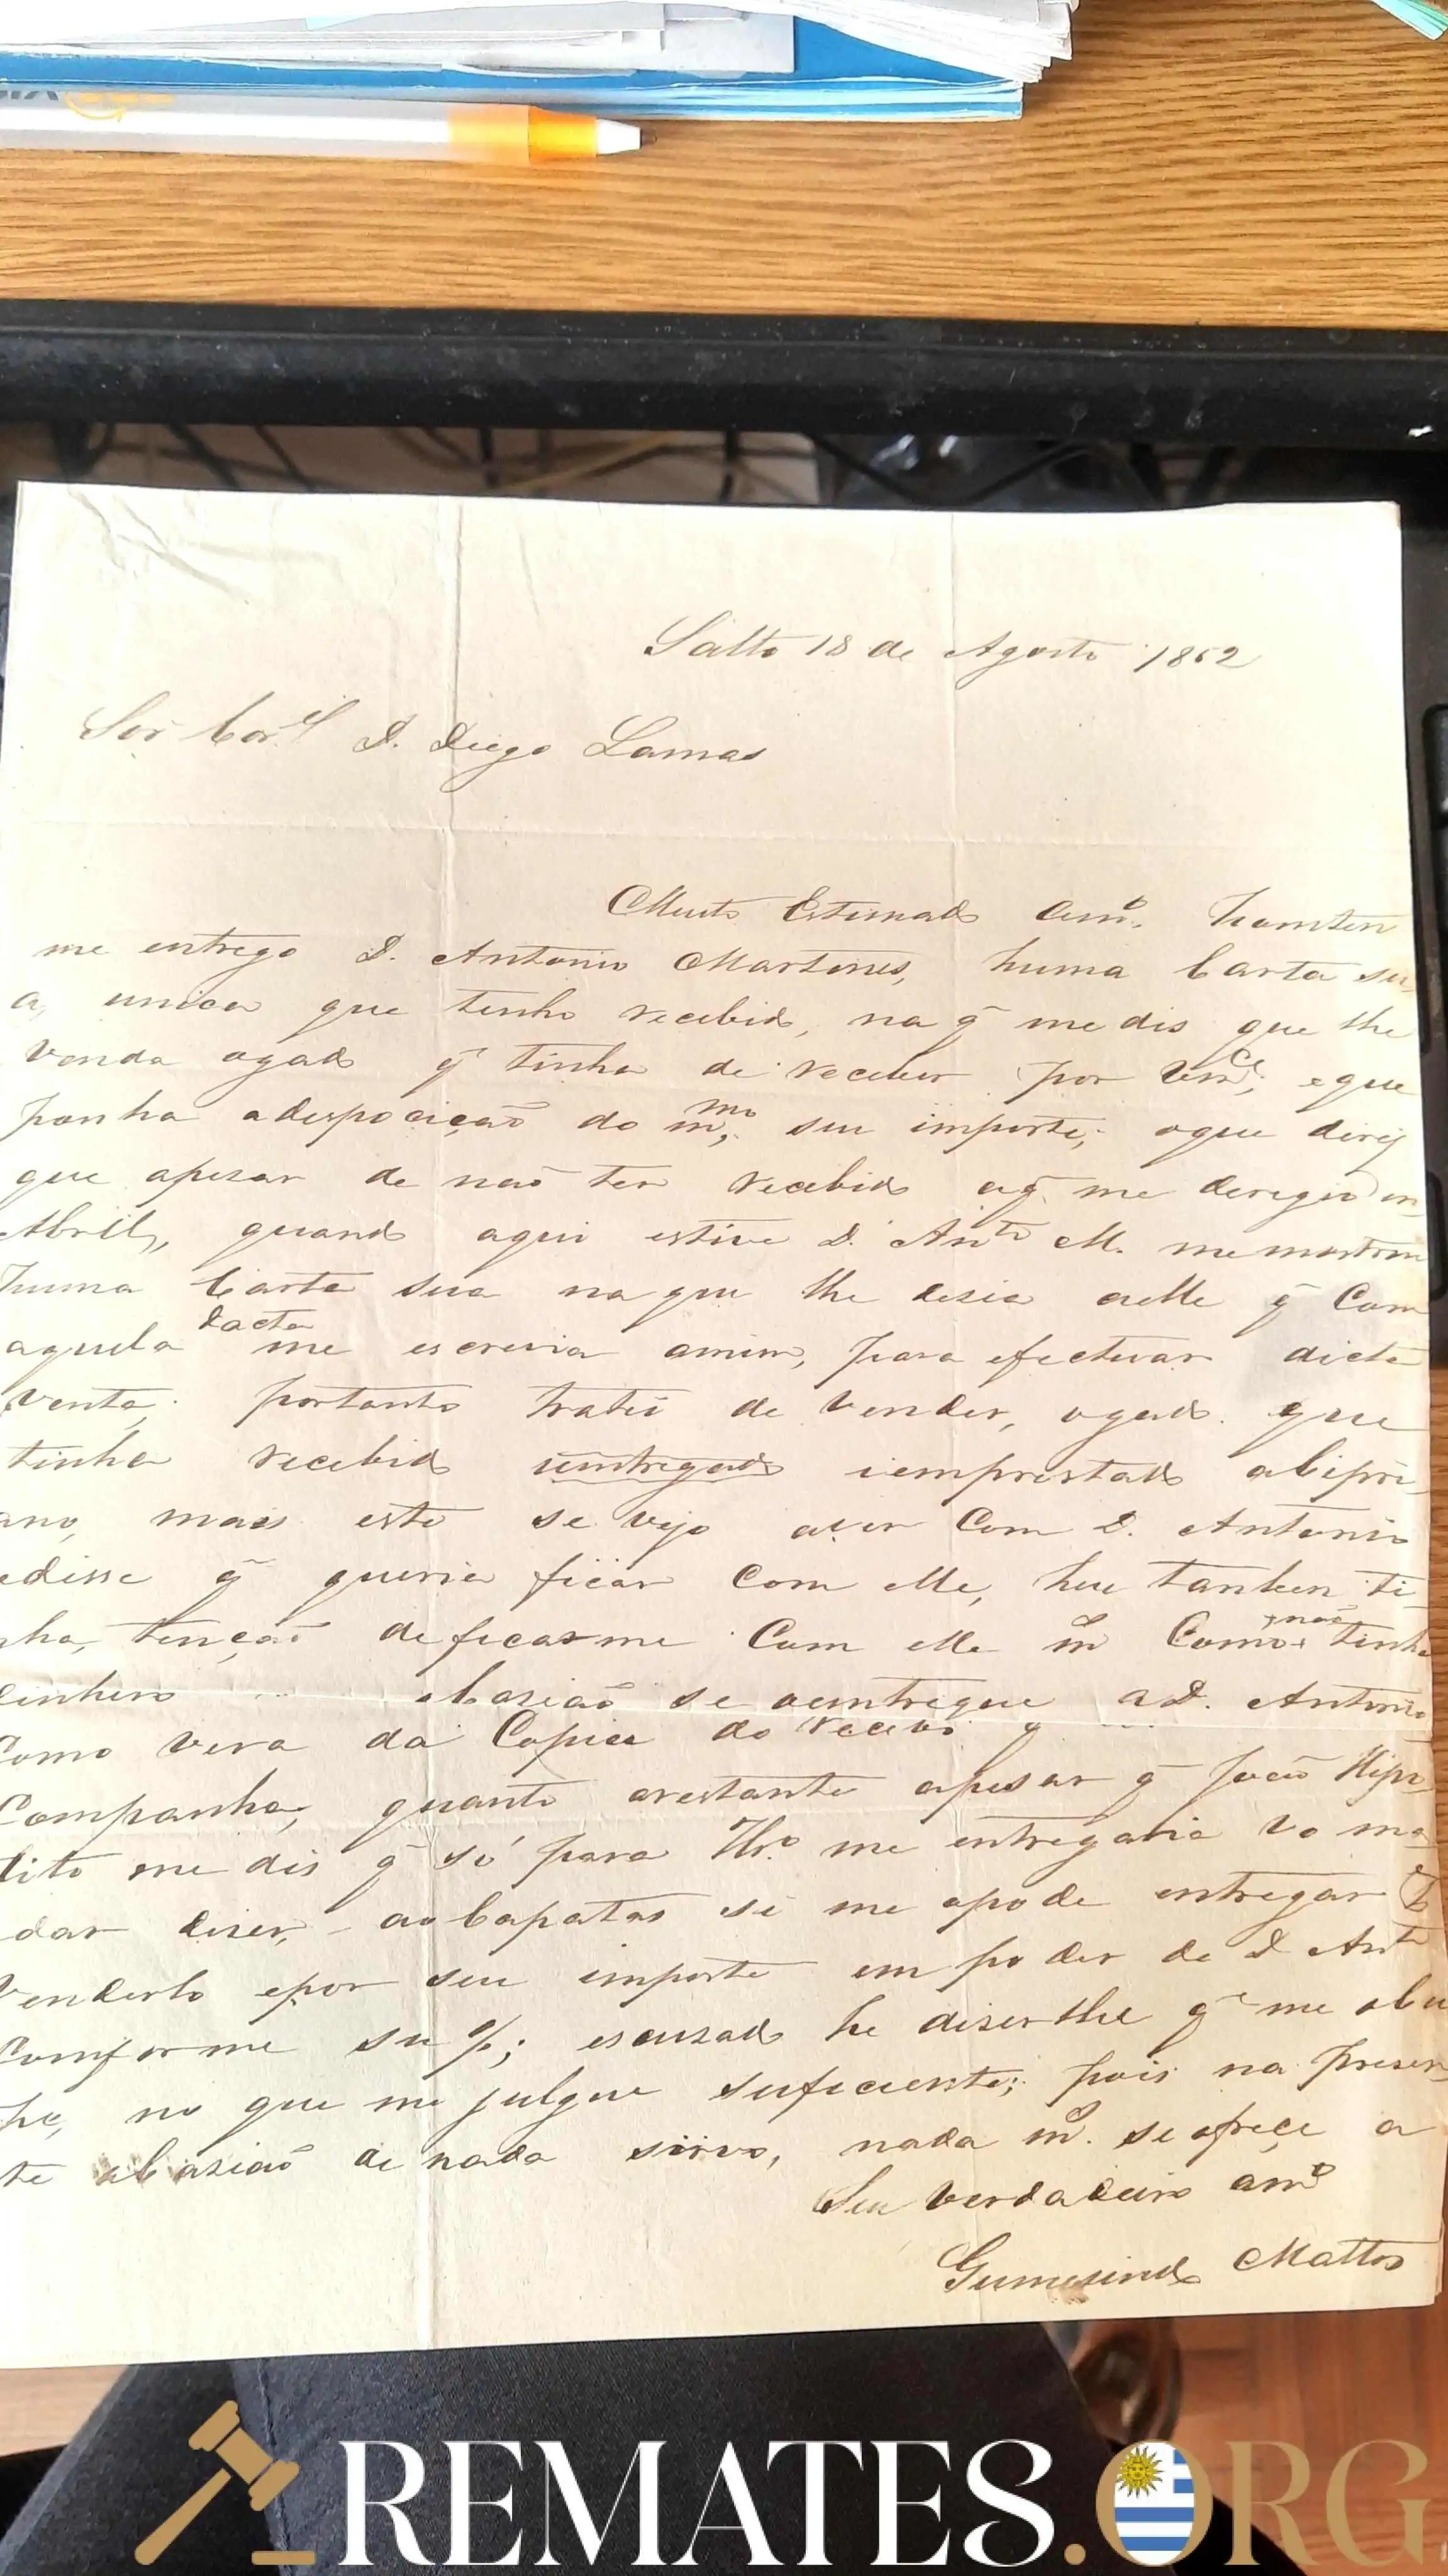 Salto 18 de Agosto 1852
Sor Cor.el D. Diego Lamas
Muito Estimado Amo.
me entrego D. Antonio Martines, huma Carta su
a, unica que tenho recebido, na q̃ me dis que lhe
Venda ogado q̃ tinha de receber por Vmce; eque
ponha adesposição do mmo; seu importe; oque
que apesar de não ter recebido aq̃ me deregio en
Abril, quando aqui estive D. Anto M. me mostrou
huma Carta sua na que lhe desia aelle q̃ Com
aquela dacta me escrevia amim, para efectuar dicta
venta; portanto tratei de vender, ogado que
tinha recebido iemprestado aCipri
ano, mais este se vejo aver Com D. Antonio
edisse q̃ queria ficar Com elle, heu tanben ti
nha, tenção deficarme Com elle Como não tinha
dinhero ocasião se D. Antonio
Como vera da Copia do recevo q
Companha; quanto orestante apesar q̃ João Hipo
lito me dis q̃ só para me entregaria Vo ma
dar diser, aoCapatas se me opode entregar
Venderlo epor seu importe em poder de D Anto
Comforme su %; escusado he diserlhe q̃ me ocu
pe, no que me julgue suficiente; pois na presen
te ocasião de nada sirvo, nada m. se ofreçe a
Seu verdadeiro amo
Gumesindo Mattos
REMATES.ORG